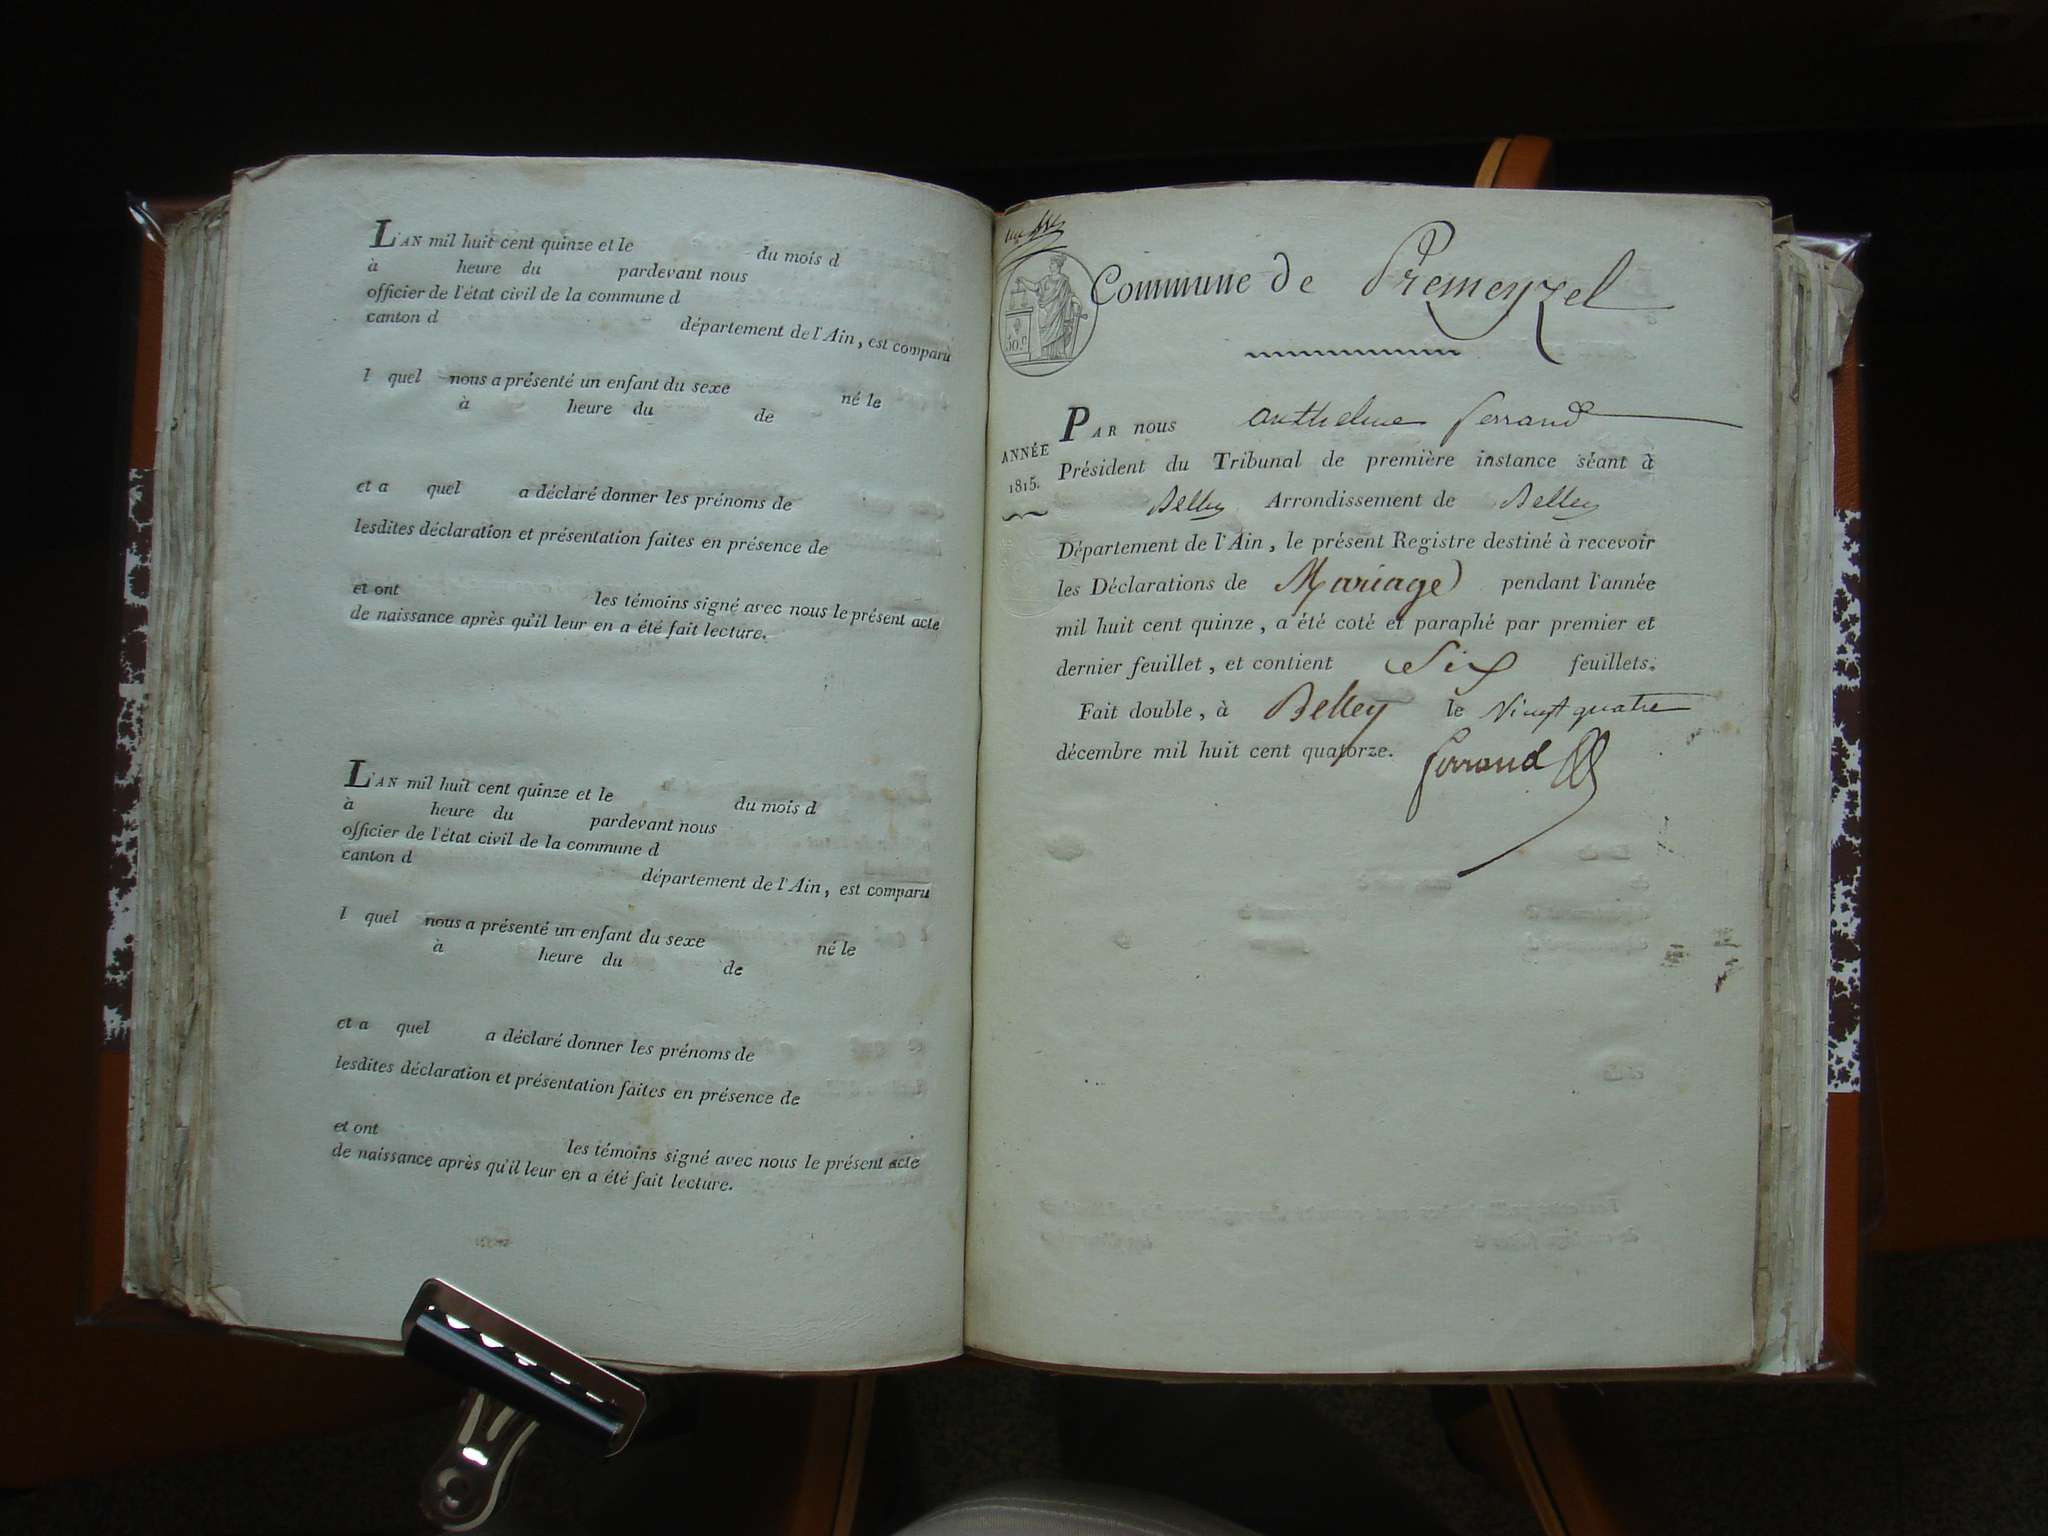 L'AN mil huit cent quinze et le du mois d
à heure du pardevant nous
officier de l'état civil de la commune d
canton d département de l'Ain, est comparu
l quel nous a présenté un enfant du sexe né le
à heure du de
et a quel a déclaré donner les prénoms de
lesdites déclaration et présentation faites en présence de
et ont les témoins signé avec nous le présent acte
de naissance après qu'il leur en a été fait lecture.
L'AN mil huit cent quinze et le du mois d
à heure du pardevant nous
officier de l'état civil de la commune d
canton d département de l'Ain, est comparu
l quel nous a présenté un enfant du sexe né le
à heure du de
et a quel a déclaré donner les prénoms de
lesdites déclaration et présentation faites en présence de
et ont les témoins signé avec nous le présent acte
de naissance après qu'il leur en a été fait lecture.
Commune de Premeyzel
50 c.
ANNÉE
1815.
PAR nous anthelme ferrand
Président du Tribunal de première instance séant à
Belley Arrondissement de Belley
Département de l'Ain, le présent Registre destiné à recevoir
les Déclarations de Mariage pendant l'année
mil huit cent quinze, a été coté et paraphé par premier et
dernier feuillet, et contient Six feuillets.
Fait double, à Belley le Vingt quatre
décembre mil huit cent quatorze.
ferrand